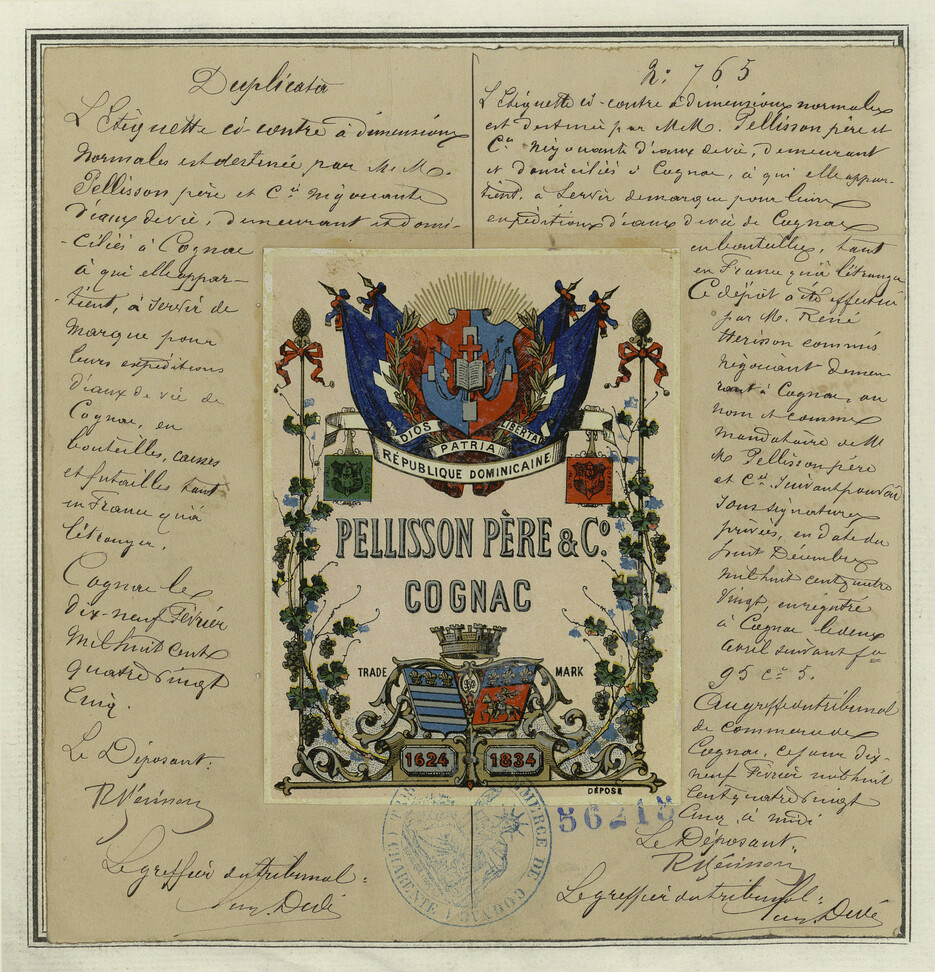 Duplicata
L'Etiquette ci-contre à dimensions
normales est destinée par M. M.
Pellisson père et Cie négociants
d'eaux de vie, demeurant et domi-
-ciliés à Cognac
à qui elle appar-
-tient, à servir de
marque pour
leurs expéditions
d'eaux de vie de
Cognac, en
bouteilles, caisses
et futailles tant
en France qu'à
l'étranger.
Cognac le
dix-neuf Février
mil huit cent
quatre vingt
cinq.
Le Déposant:
R Hérisson
Le greffier du tribunal:
No 765
L'Etiquette ci-contre à dimensions normales
est destinée par M.M. Pellisson père et
Cie négociants d'eaux de vie, demeurant
et domiciliés à Cognac, à qui elle appar-
tient, à servir de marque pour leurs
expéditions d'eaux de vie de Cognac
en bouteilles, tant
en France qu'à l'étranger
Ce dépôt a été effectué
par M. René
Hérisson commis
négociant demeu
rant à Cognac, au
nom et comme
mandataire de M
M Pellisson père
et Cie suivant pouvoir
sous signatures
privées, en date du
huit Décembre
mil huit cent quatre
vingt, enregistré
à Cognac le deux
avril suivant fo
95 co 5.
Au greffe du tribunal
de commerce de
Cognac, ce jour dix-
neuf Février mil huit
cent quatre vingt
cinq, à midi
Le Déposant:
R Hérisson
Le greffier du tribunal:
DIOS PATRIA LIBERTAD
RÉPUBLIQUE DOMINICAINE
PELLISSON PÈRE & Co.
COGNAC
TRADE MARK
1624 1834
DÉPOSÉ
56218
COMMERCE DE COGNAC (CHARENTE)